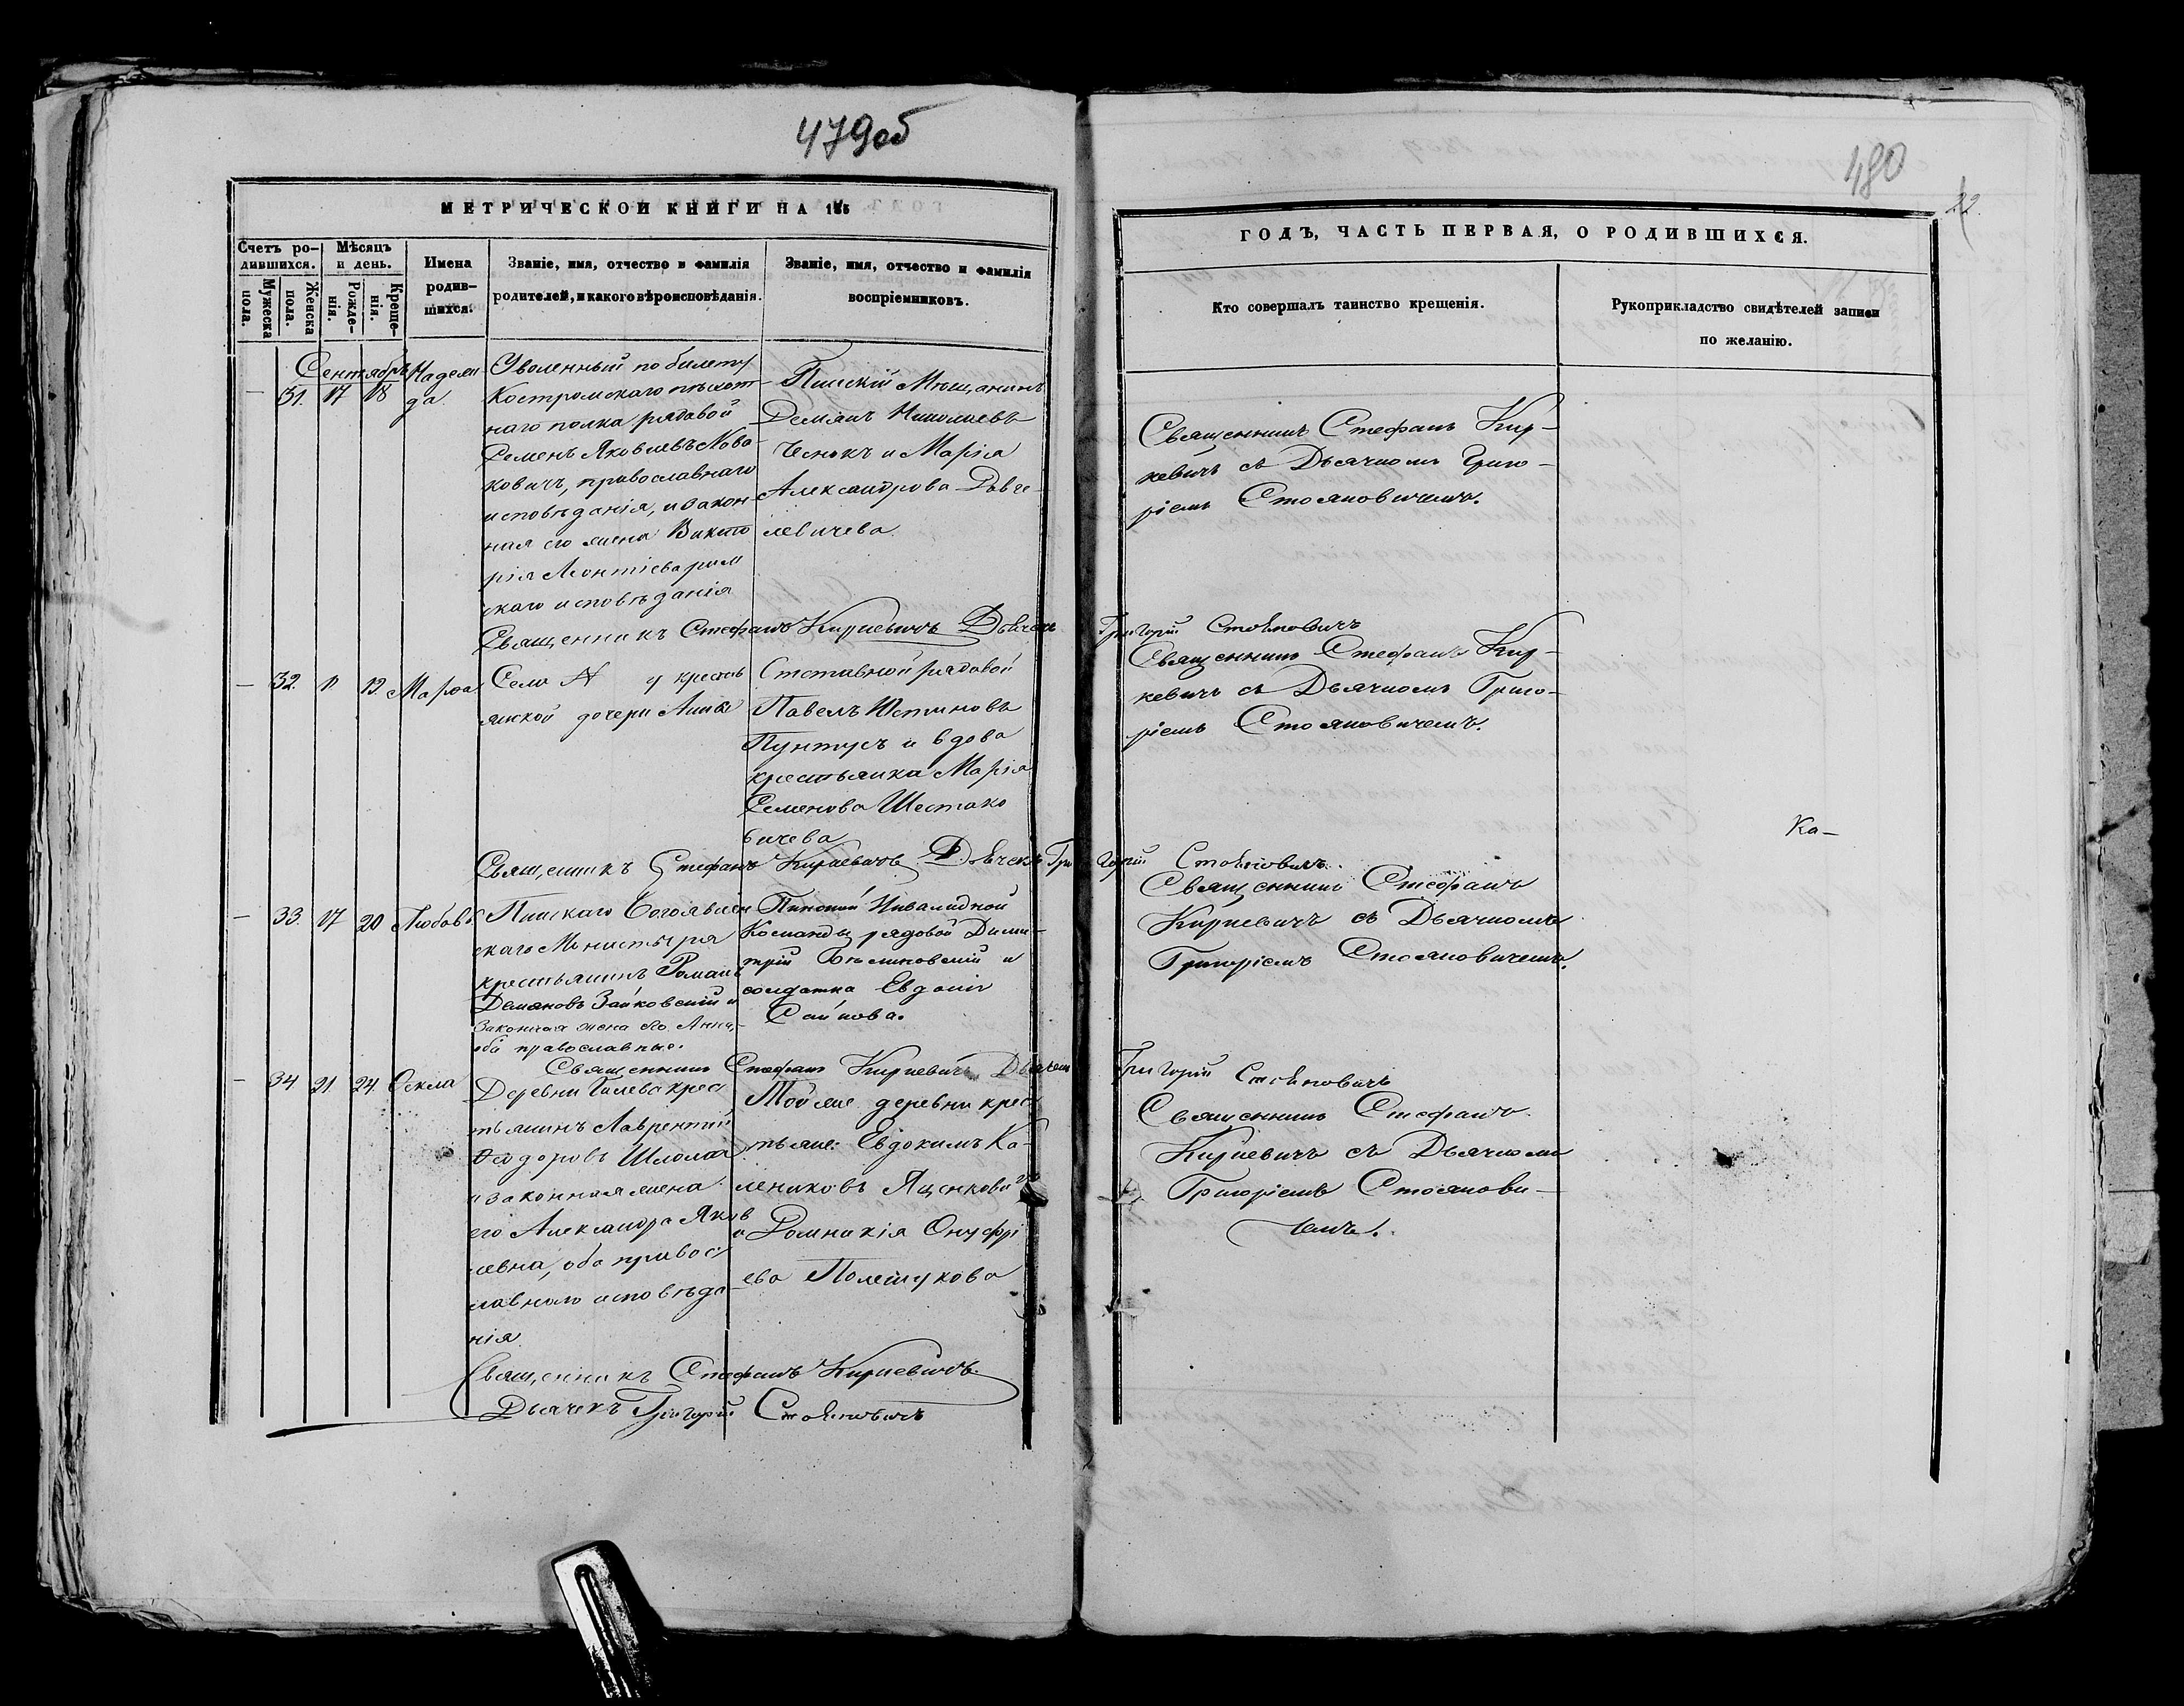 479об
МЕТРИЧЕСКОЙ КНИГИ НА 185
Счетъ ро-
дившихся.
Мужеска
пола.
Женска
пола.
Мѣсяцъ
и день.
Рожде-
нія.
Креще-
нія.
Имена
родив-
шихся.
Званіе, имя, отчество и фамилія
родителей, и какого вѣроисповѣданія.
Званіе, имя, отчество и фамилія
воспріемниковъ.
Сентябрь
— 31. 17 18 Надежда
Уволенный по билету
Костромскаго пѣхот-
наго полка рядовой
Семенъ Яковлевъ Нова-
ковичъ, православнаго
исповѣданія, и закон-
ная его жена Викто
рія Леонтіева рим
скаго исповѣданія
Пинскій Мѣщанинъ
Демянъ Николаевъ
Чеснокъ и Марія
Александрова
левичева.
Священникъ Стефанъ Киркевичъ Дьячекъ
— 32. 11 12 Марѳа
Села N у кресть
янской дочери Анны
Отставной рядовой
Павелъ Устиновъ
Пунтусъ и вдова
крестьянка Марія
Семенова Шестако
вичева
Священникъ Стефанъ Киркевичъ Дьячекъ Гри
— 33. 17 20 Любовь
Пинскаго Богоявлен
скаго Монастыря
крестьянинъ Романъ
Демяновъ Зайковскій и
Законная жена его Анна,
оба православные.
Пинской Инвалидной
Команды рядовой Дими-
трій Бѣлиновскій и
солдатка Евдокія
Сайкова.
Священникъ Стефанъ Киркевичъ Дьячекъ
— 34 21 24 Ѳекла
Деревни Галева крес
тьянинъ Лаврентій
Ѳеодоровъ Шлома
и законная жена
его Александра Яков
левна, оба правос
лавнаго исповѣда
нія.
Той же деревни крес
тьяне: Евдокимъ Ка-
лениковъ Яценкови
и Домникія Онуфрі
ева Полещукова
Священникъ Стефанъ Киркевичъ
Дьячекъ Григорій Стояновичъ
480
22.
ГОДЪ, ЧАСТЬ ПЕРВАЯ, О РОДИВШИХСЯ.
Кто совершалъ таинство крещенія.
Рукоприкладство свидѣтелей записи
по желанію.
Священникъ Стефанъ Кир-
кевичъ съ Дьячкомъ Григо-
ріемъ Стояновичемъ.
Григорій Стояновичъ
Священникъ Стефанъ Кир-
кевичъ съ Дьячкомъ Григо-
ріемъ Стояновичемъ.
Ка-
горій Стояновичъ.
Священникъ Стефанъ
Киркевичъ съ Дьячкомъ
Григоріемъ Стояновичемъ.
Григорій Стояновичъ
Священникъ Стефанъ
Киркевичъ съ Дьячкомъ
Григоріемъ Стоянови-
чемъ.